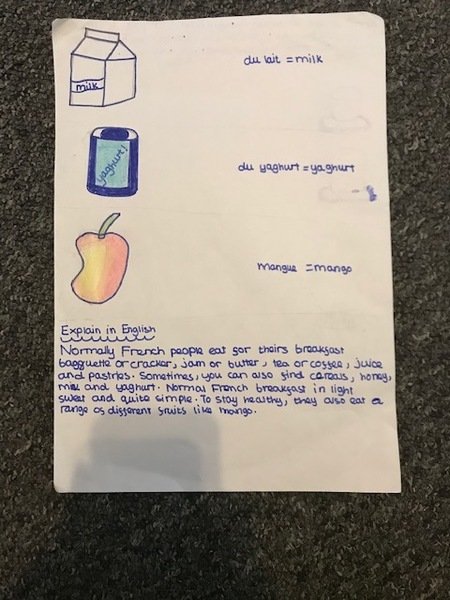 milk
du lait = milk
yaghurt!
du yaghurt = yaghurt
mangue = mango
Explain in English
Normally French people eat for theirs breakfast
bagguette or cracker, jam or butter, tea or coffee, juice
and pastries. Sometimes, you can also find cereals, honey,
milk and yaghurt. Normal French breakfast in light
sweet and quite simple. To stay healthy, they also eat a
range of different fruits like mango.